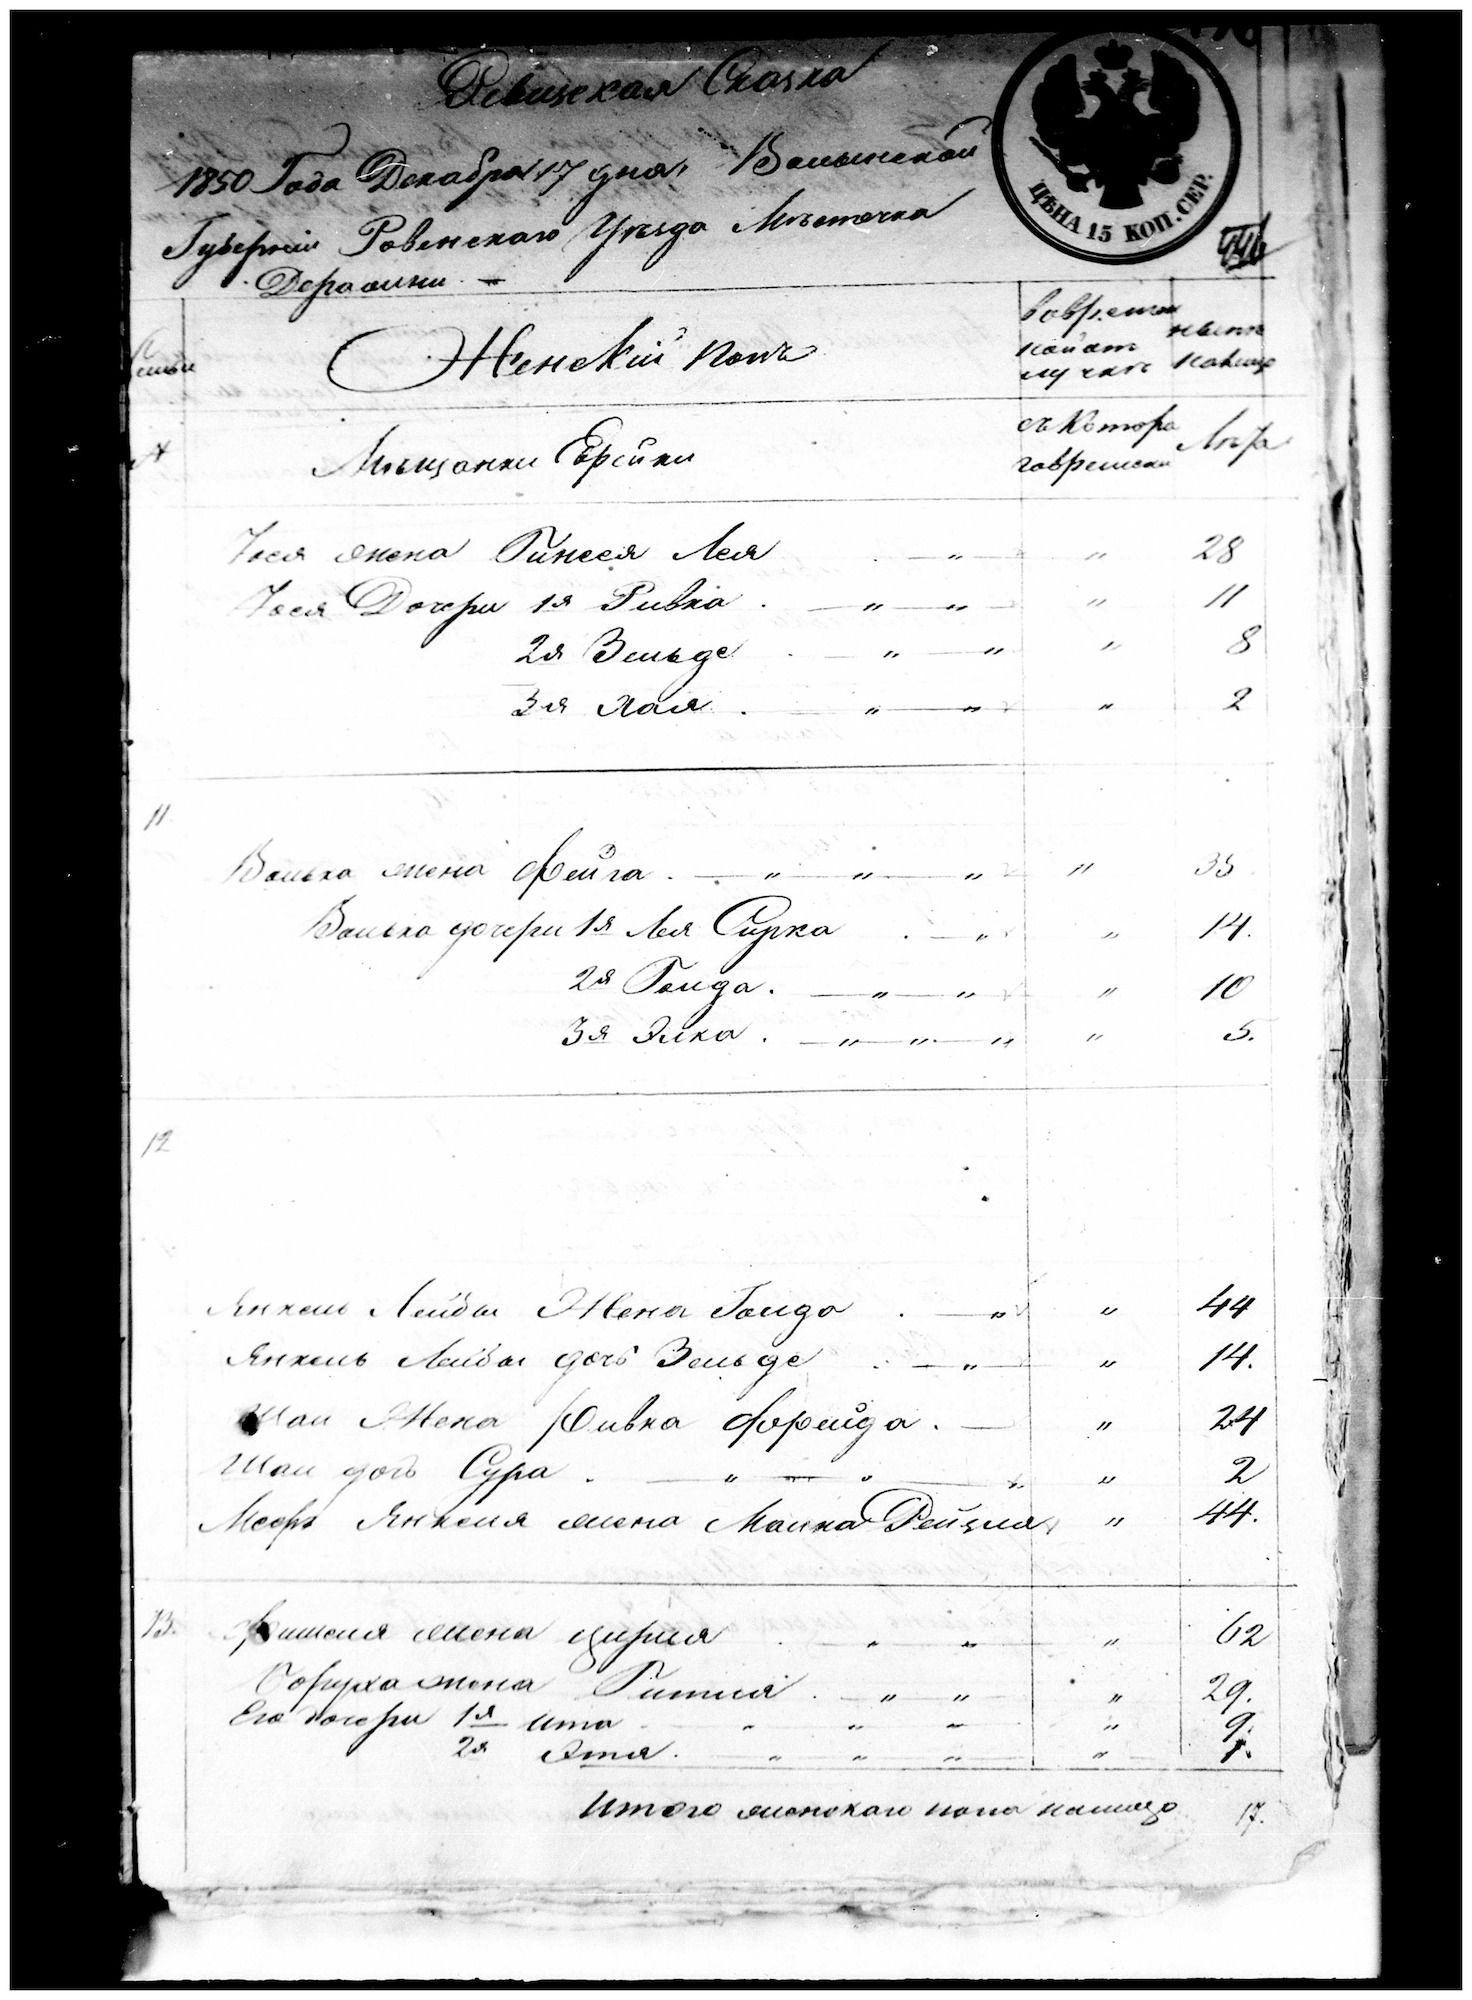 Ревизская Сказка
1850 Года Декабря 17 дня, Волынской
Губернии Ровенскаго Уѣзда Мѣстечка
Деражни
ЦѢНА 15 КОП. СЕР.
Семьи
Женскій полъ
вовремен
ной от
лучкѣ
нынѣ
налицо
№
Мѣщанки Еврейки
съ Котора
говремени
Лѣта
Иося жена Гинеся Лея " " 28
Иося Дочери 1я Ривка " " " 11
2я Зельде " " " 8
3я Хая " " " 2
11
Волька жена Фейга " " " " 35
Волька дочери 1я Лея Сурка " " 14.
2я Голда " " " 10
3я Элка " " " " 5.
12
Янкель Лейбы Жена Голда " " 44
Янкель Лейбы дочь Зельде " " 14.
Шаи Жена Ривка Фрейда " 24
Шаи дочь Сура " " " 2
Янкеля жена Малка Рейзля " 44.
13.
Фишеля жена Цирля " " " 62
Боруха жена Гитля " " " 29.
Его дочери 1я Ита " " " " 9.
2я Этя " " " "
Итого женскаго пола налицо 17.